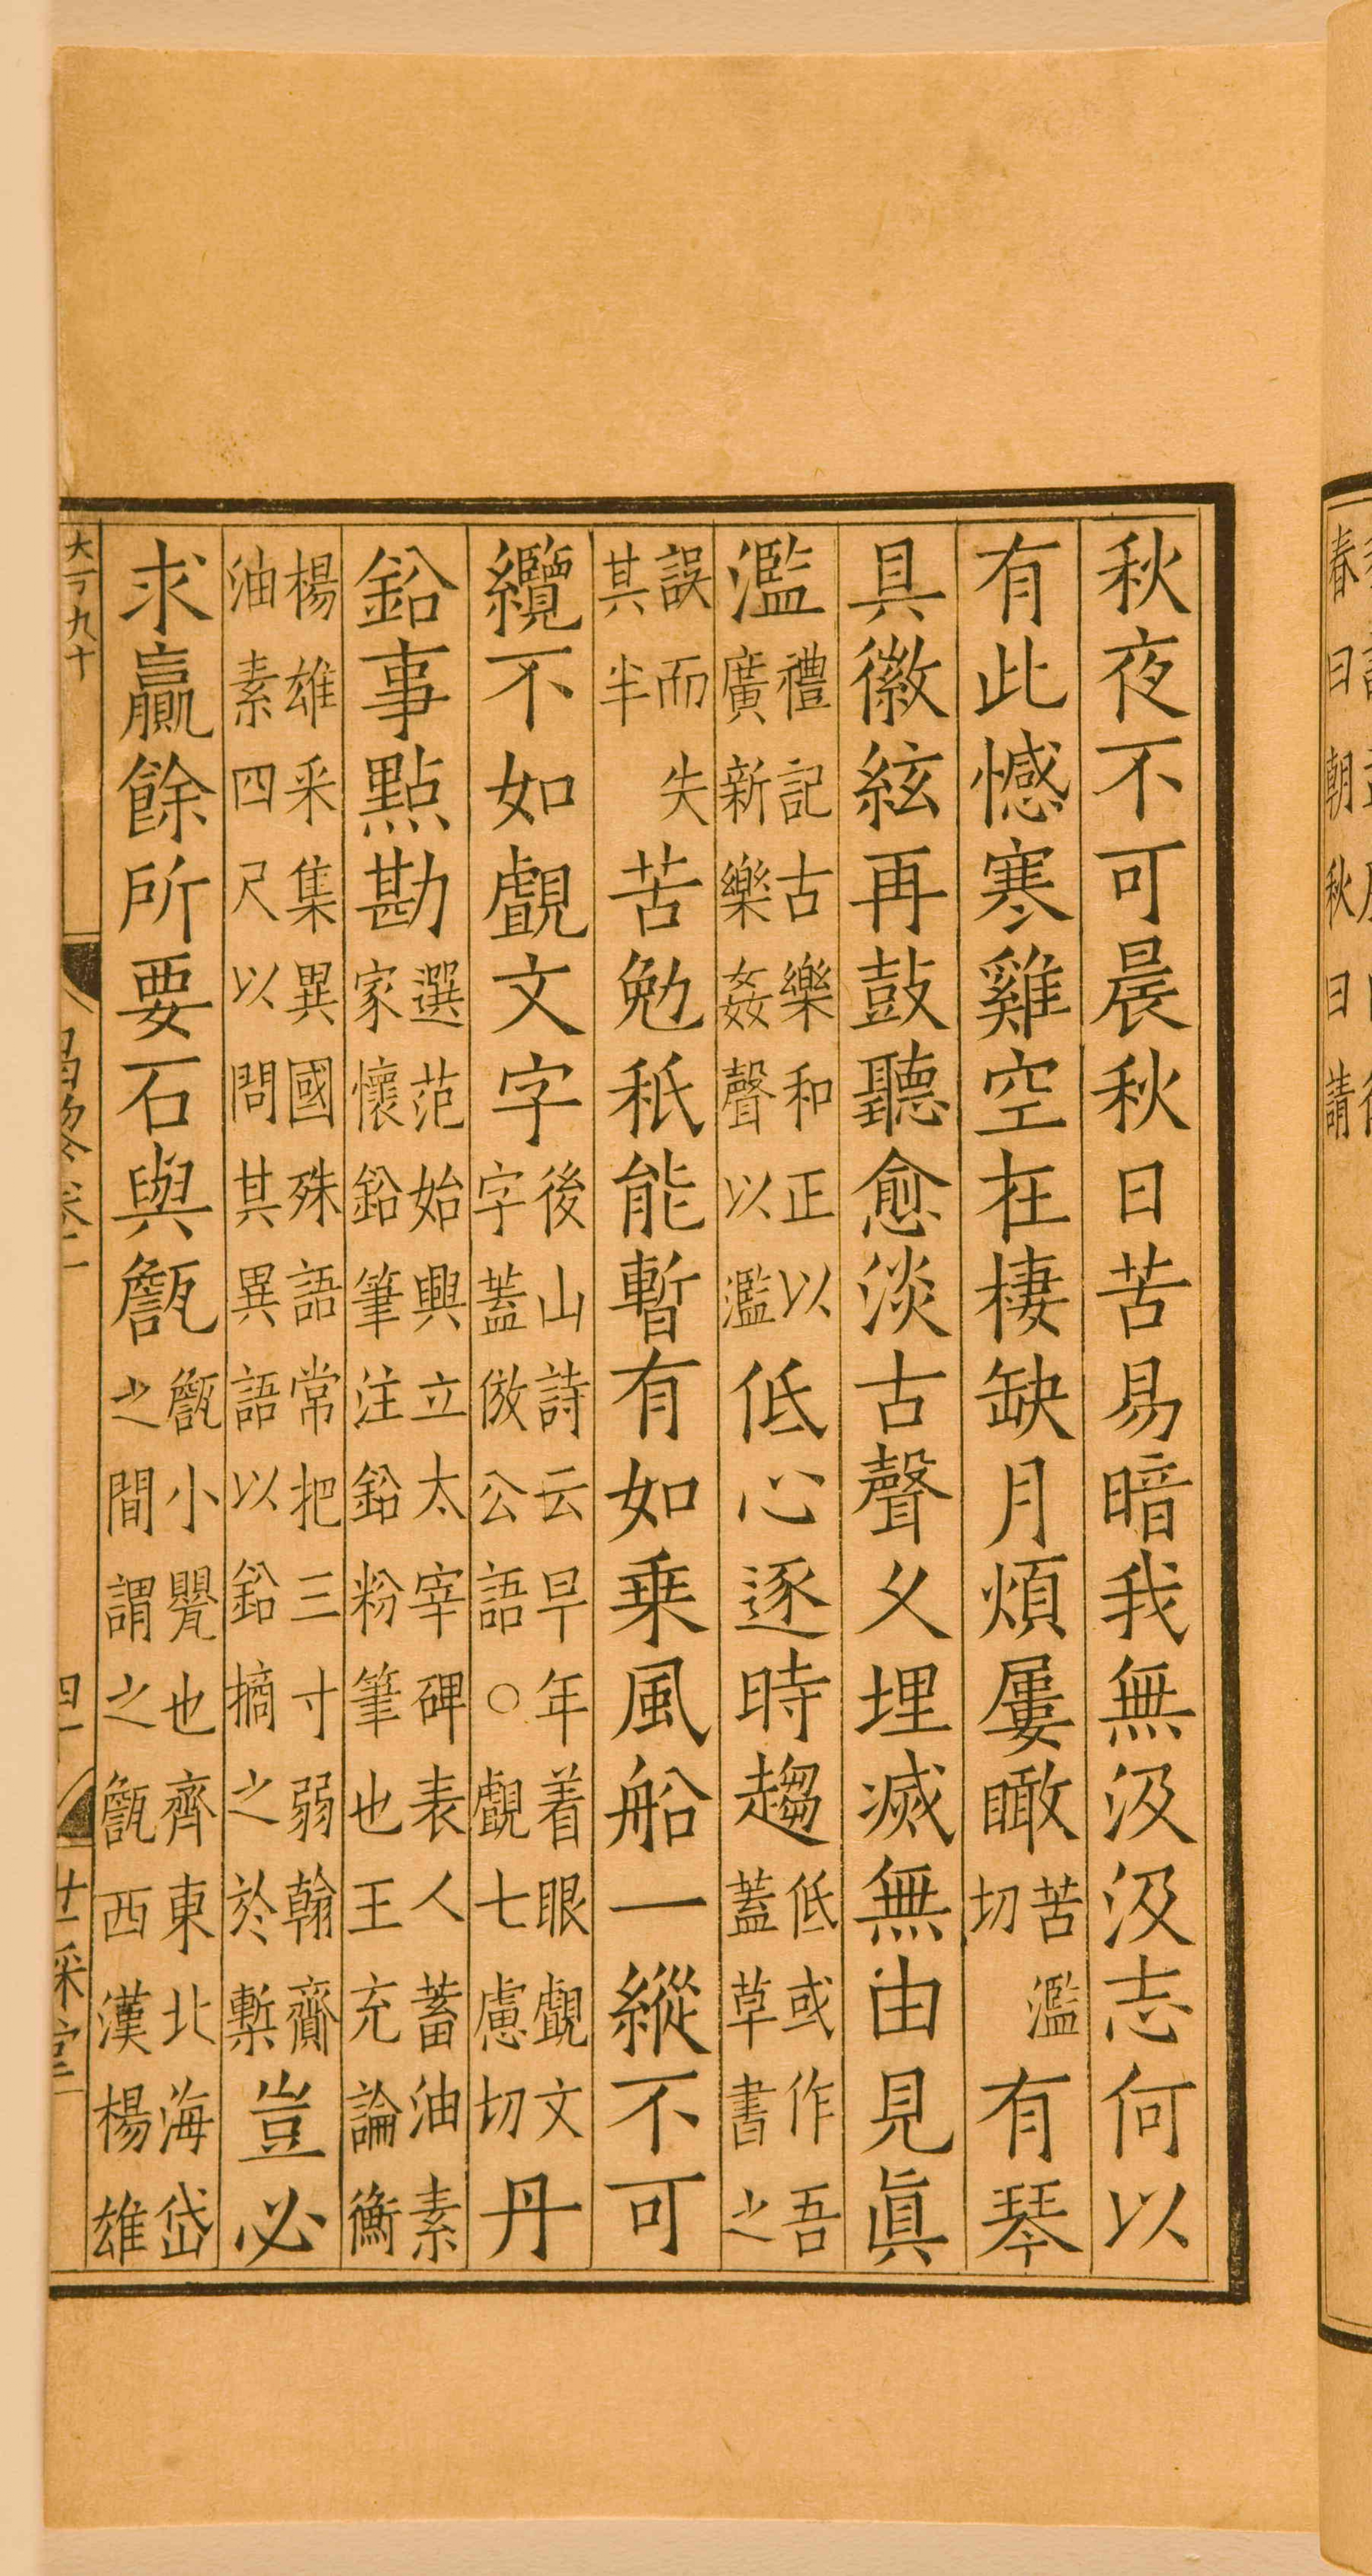 秋夜不可晨秋日苦易暗我無汲汲志何以
有此憾寒雞空在棲缺月煩屢瞰苦濫切有琴
具徽絃再鼓聽愈淡古聲久埋滅無由見眞
濫禮記古樂和正以廣新樂姦聲以濫低心逐時趨低或作吾蓋草書之
誤而失其半苦勉秖能暫有如乗風船一縱不可
纜不如覰文字後山詩云早年着眼覰文字蓋倣公語○覰七慮切丹
鉛事點勘選范始興立太宰碑表人蓄油素家懷鉛筆注鉛粉筆也王充論衡
楊雄采集異國殊語常把三寸弱翰齎油素四尺以問其異語以鉛摘之於槧豈必
求贏餘所要石與甔甔小甖也齊東北海岱之間謂之甔西漢楊雄
大一丁九十
四
廿二采堂
春日朝秋日請